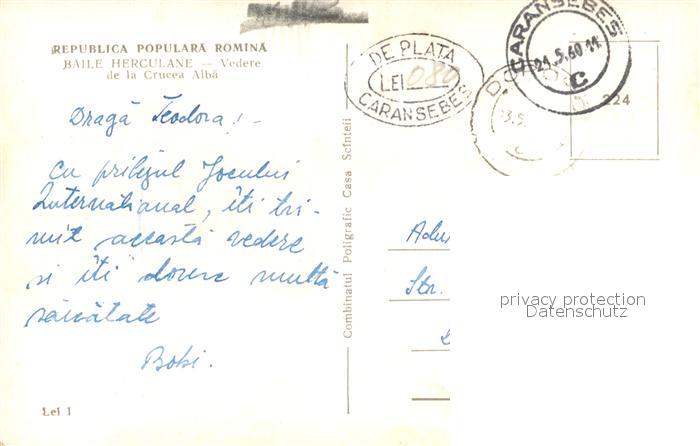 REPUBLICA POPULARĂ ROMÎNĂ
BĂILE HERCULANE — Vedere
de la Crucea Albă
Dragă Teodora! -
Cu prilejul Jocului
Internațional, îți tri-
mit această vedere
și îți doresc multă
sănătate
Bobi.
Lei 1
Combinatul Poligrafic Casa Scînteii
DE PLATĂ
LEI 080
CARANSEBEȘ
CARANSEBEȘ
21.5.60.11
C
224
Str.
privacy protection
Datenschutz